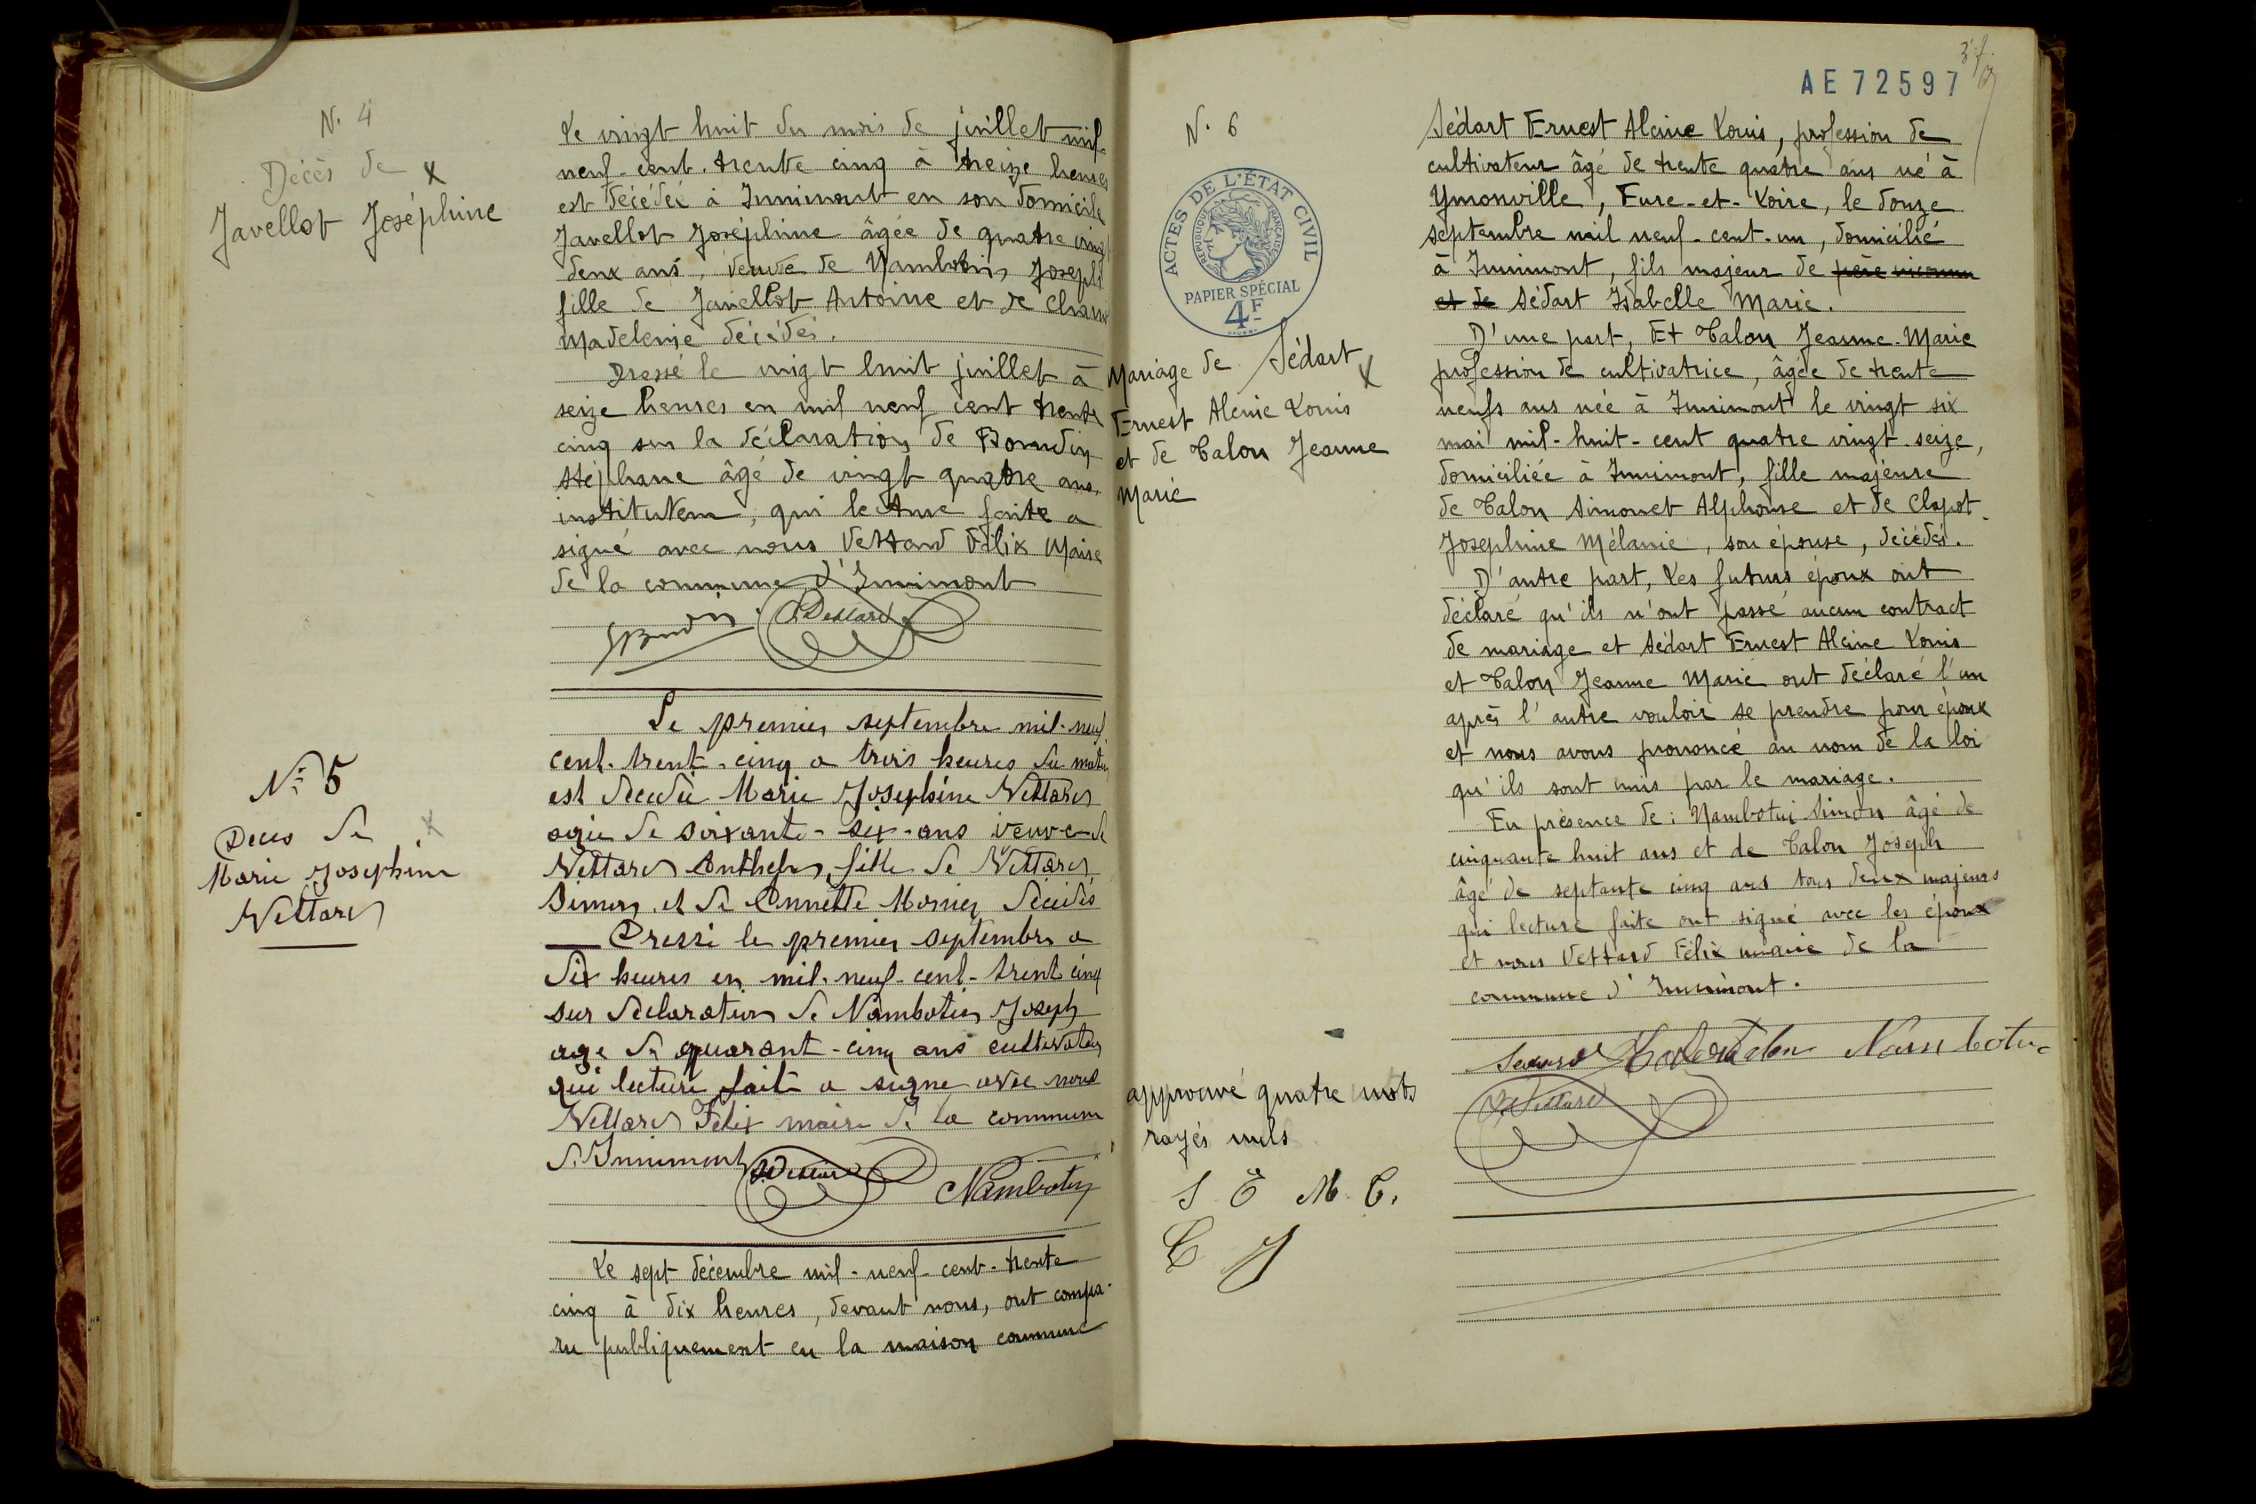 N. 4
Décès de
Javellot Joséphine
Le vingt huit du mois de juillet mil-
neuf-cent-trente cinq à treize heures
est décédée à Innimont en son domicile
Javellot Joséphine âgée de quatre vingt
deux ans, veuve de Nambotin Joseph
fille de Javellot Antoine et de
Madeleine décédés.
Dressé le vingt huit juillet à
seize heures en mil neuf cent trente
cinq sur la déclaration de Bourdin
Stéphane âgé de vingt quatre ans,
instituteur, qui lecture faite a
signé avec nous Vettard Félix Maire
de la commune d'Innimont
Vettard
N° 5
Deces de
Marie Josephine
Vettard
Le premier septembre mil-neuf
cent-trent-cinq a trois heures du matin
est decedeé Marie Josephine Vettard
agée de soixante-six-ans veuve de
Vettard Anthelme fille de Vettard
Simon et de Annette Monier décédés
Dressé le premier septembre a
dix heures en mil-neuf-cent-trent cinq
sur declaration de Nambotin Joseph
age de quarant-cinq ans cultivateur
qui lecture fait a signe avec nous
Vettard Felix maire de la commune
d'Innimont
Vettard Nambotin
Le sept décembre mil-neuf-cent-trente
cinq à dix heures, devant nous, ont compa-
ru publiquement en la maison commune
N. 6
ACTES DE L'ÉTAT CIVIL
RÉPUBLIQUE FRANÇAISE
PAPIER SPÉCIAL
4F
Mariage de Sédart
Ernest Alcine Louis
et de Talon Jeanne
Marie
approuvé quatre mots
rayés nuls
S E M. T.
T J
AE 72597
Sédart Ernest Alcine Louis, profession de
cultivateur âgé de trente quatre ans né à
Ymonville, Eure-et-Loire, le douze
septembre mil neuf-cent-un, domicilié
à Innimont, fils majeur de père inconnu
et de Sédart Isabelle Marie.
D'une part, Et Talon Jeanne-Marie
profession de cultivatrice, âgée de trente
neufs ans née à Innimont le vingt six
mai mil-huit-cent quatre vingt seize,
domiciliée à Innimont, fille majeure
de Talon Simonet Alphonse et de Clapot
Joséphine Mélanie, son épouse, décédés.
D'autre part, Les futurs époux ont
déclaré qu'ils n'ont passé aucun contract
de mariage et Sédart Ernest Alcine Louis
et Talon Jeanne Marie ont déclaré l'un
après l'autre vouloir se prendre pour époux
et nous avons prononcé au nom de la loi
qu'ils sont unis par le mariage.
En présence de : Nambotin Simon âgé de
cinquante huit ans et de Talon Joseph
âgé de septante cinq ans tous deux majeurs
qui lecture faite ont signé avec les époux
et nous Vettard Félix maire de la
commune d'Innimont.
Nambotin
Vettard